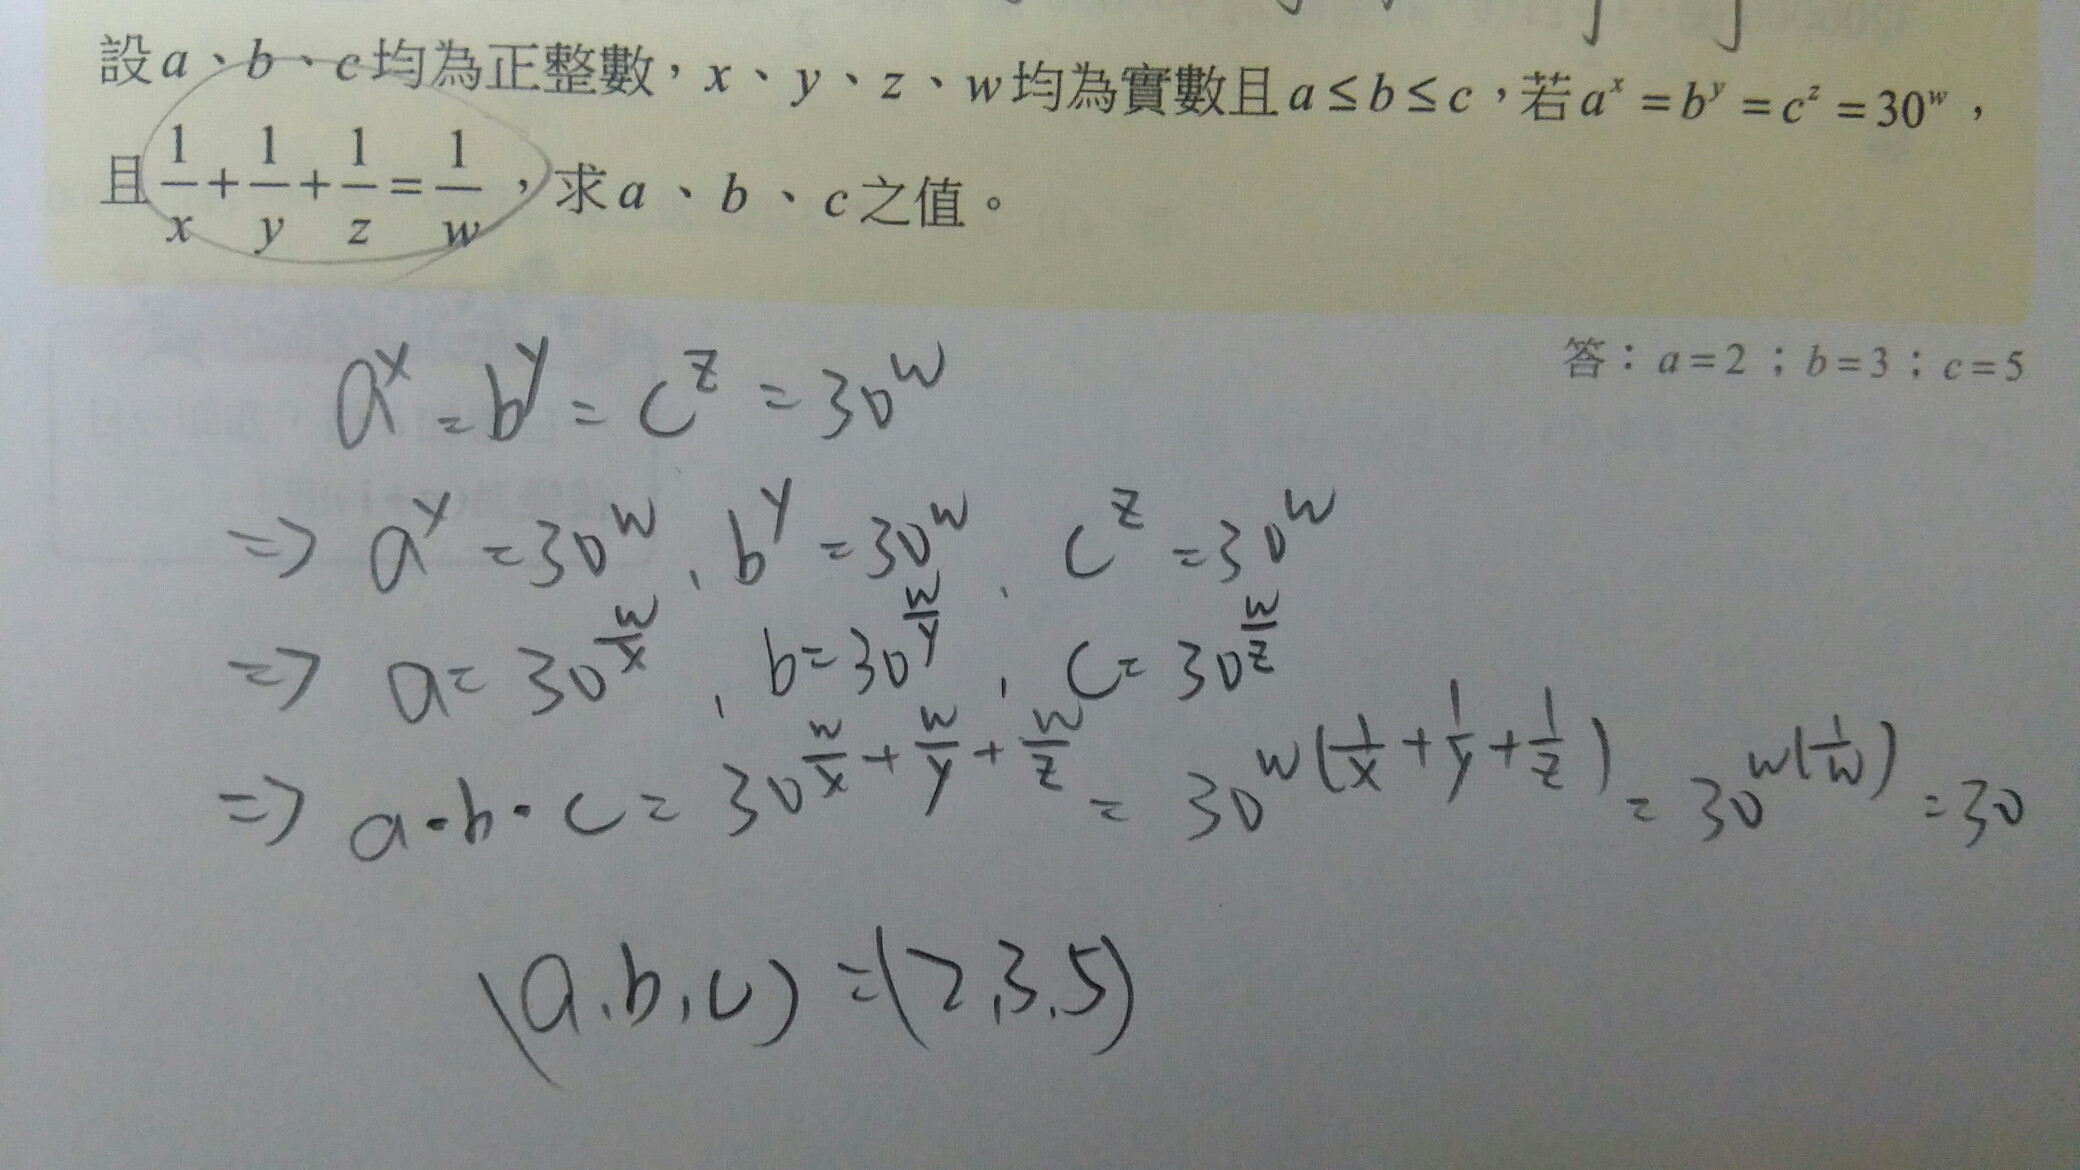 設a、b、c均為正整數，x、y、z、w均為實數且a≤b≤c，若a^x=b^y=c^z=30^w，
且1/x+1/y+1/z=1/w，求a、b、c之值。
答：a=2；b=3；c=5
a^x=b^y=c^z=30^w
⇒ a^x=30^w、b^y=30^w、c^z=30^w
⇒ a=30^(w/x)、b=30^(w/y)、c=30^(w/z)
⇒ a·b·c=30^(w/x+w/y+w/z)=30^(w(1/x+1/y+1/z))=30^(w(1/w))=30
(a,b,c)=(2,3,5)